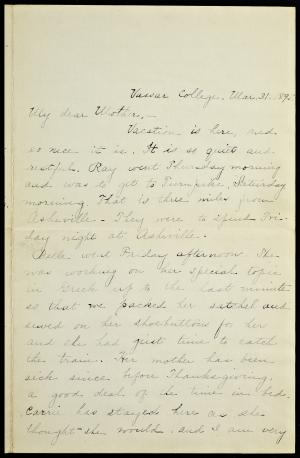 Vassar College, Mar. 31. 189
My dear Mother,-
Vacation is here, and
so nice it is. It is so quiet and
restful. Ray went Thursday morning
and was to get to Turnpike, Saturday
morning. That is three miles from
Asheville - They were to spend Fri-
day night at Ashville.
Belle went Friday afternoon. She
was working on her special topic
in Greek up to the last minute
so that we packed her satchel and
sewed on her shoebuttons for her
and she had just time to catch
the train. Her mother has been
sick since before Thanksgiving,
a good deal of the time in bed.
Carrie has stayed here as she
thought she would, and I am very